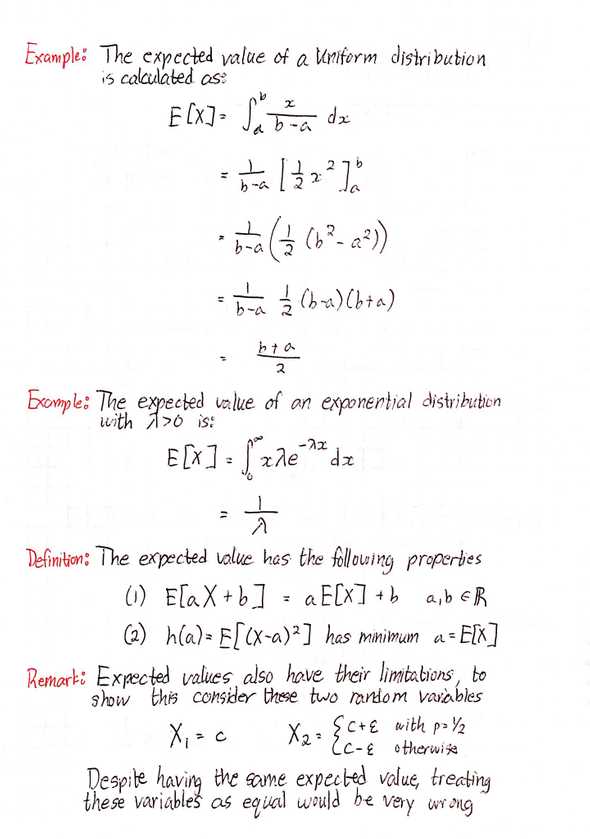 Example: The expected value of a Uniform distribution
is calculated as:
E[X] = ∫_a^b x/(b-a) dx
= 1/(b-a) [1/2 x²]_a^b
= 1/(b-a) (1/2 (b² - a²))
= 1/(b-a) 1/2 (b-a)(b+a)
= (b+a)/2
Example: The expected value of an exponential distribution
with λ>0 is:
E[X] = ∫_0^∞ xλe^(-λx) dx
= 1/λ
Definition: The expected value has the following properties
(1) E[aX+b] = aE[X] + b a,b ∈ ℝ
(2) h(a) = E[(X-a)²] has minimum a = E[X]
Remark: Expected values also have their limitations, to
show this consider these two random variables
X₁ = c X₂ = { c+ε with p=1/2
c-ε otherwise
Despite having the same expected value, treating
these variables as equal would be very wrong